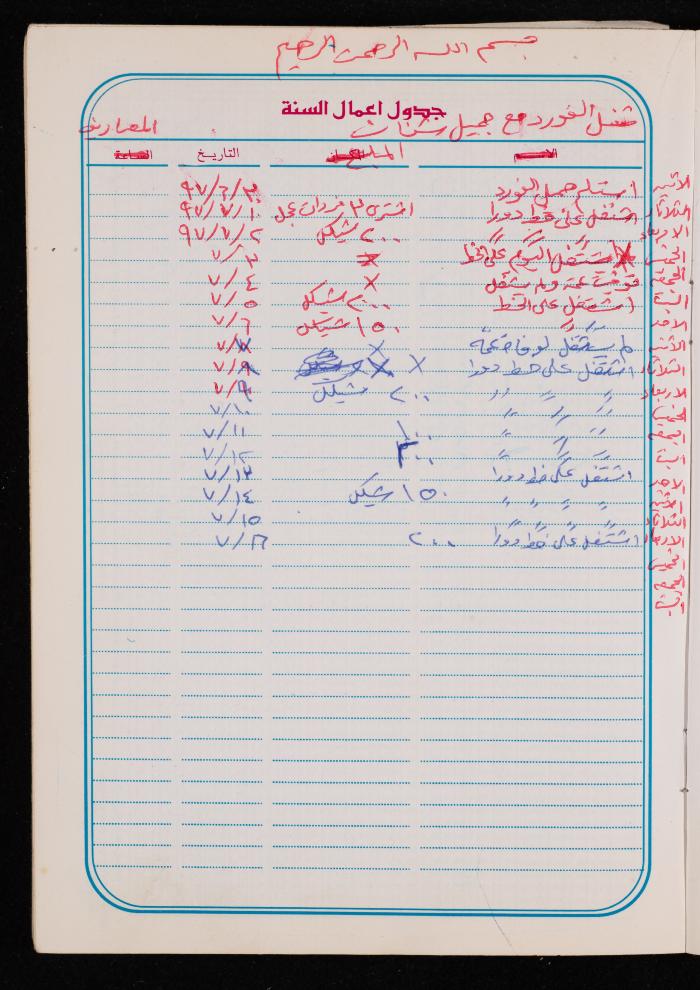 بسم الله الرحمن الرحيم
جدول اعمال السنة
شغل الفورد مع جميل المصاريف
الاسم المبلغ التاريخ الساعة
الاثنين استلم جميل الفورد ٩٧/٦/٣٠
الثلاثاء اشتغل على خط دورا اشترى ٩٧/٧/١
الاربعاء " " " ٢٠٠ شيكل ٩٧/٧/٢
الخميس اشتغل اليوم على الخط X ٧/٣
الجمعة ولم يشتغل X ٧/٤
السبت اشتغل على الخط ٢٠٠ شيكل ٧/٥
الاحد " " ١٥٠ شيكل ٧/٦
الاثنين لم يشتغل X ٧/٧
الثلاثاء اشتغل على خط دورا X X ٧/٨
الاربعاء " " " ٢٠٠ شيكل ٧/٩
الخميس " " " ٧/١٠
الجمعة " " " ١٠٠ ٧/١١
السبت " " " ٧/١٢
الاحد اشتغل على خط دورا ٧/١٣
الاثنين " " " " ١٥٠ شيكل ٧/١٤
الثلاثاء ٧/١٥
الاربعاء اشتغل على خط دورا ٢٠٠ ٧/١٦
خميس
جمعة